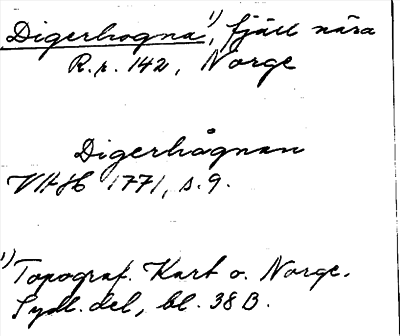 Digerhogna¹⁾, fjäll nära
R.r. 142, Norge
Digerhågnan
VHH 1771, s. 9.
¹⁾ Topograf. Kart o. Norge.
Sydl. del, bl. 38 B.